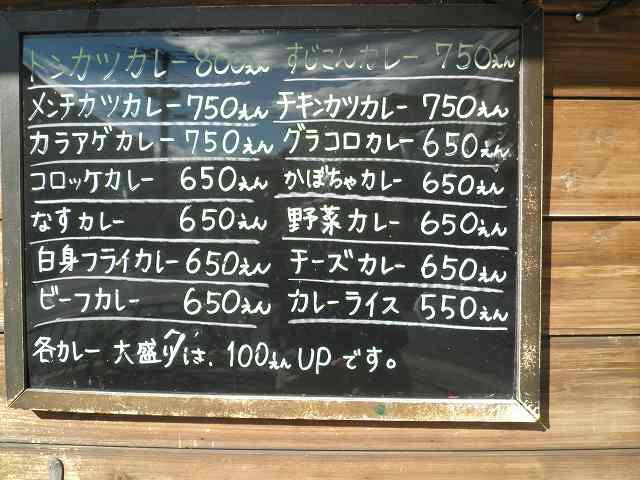 トンカツカレー 800えん すじこんカレー 750えん
メンチカツカレー 750えん チキンカツカレー 750えん
カラアゲカレー 750えん グラコロカレー 650えん
コロッケカレー 650えん かぼちゃカレー 650えん
なすカレー 650えん 野菜カレー 650えん
白身フライカレー 650えん チーズカレー 650えん
ビーフカレー 650えん カレーライス 550えん
各カレー 大盛りは、100えんUPです。